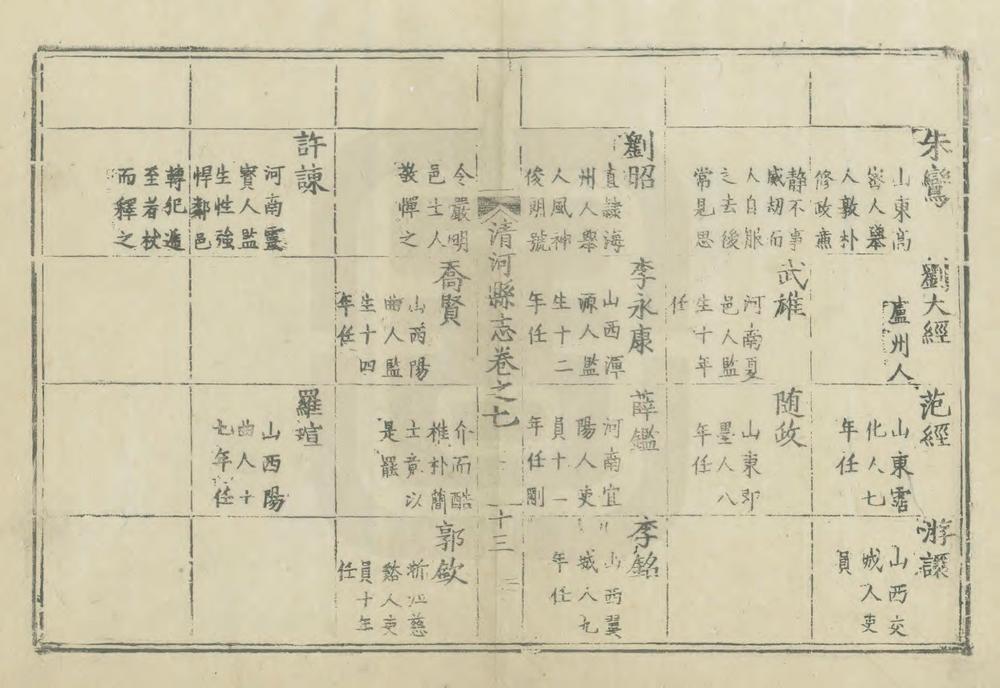 朱鸞
山東高
密人舉
人敦朴
修政廉
静不事
威劫而
人自服
之去後
常見思
劉昭
直隸海
州人舉
人風神
俊朗號
令嚴明
邑士人
敬憚之
許諫
河南靈
寳人監
生性強
悍鄰邑
轉犯過
至者杖
而釋之
劉大經
廬州人
武雄
河南夏
邑人監
生十年
任
李永康
山西渾
源人監
生十二
年任
喬賢
山西陽
曲人監
生十四
年任
范經
山東霑
化人七
年任
随政
山東即
墨人八
年任
薛鑑
河南宜
陽人吏
員十一
年任剛
介而酷
椎朴簡
士竟以
是罷
羅瑄
山西陽
曲人十
七年任
游讓
山西交
城人吏
員
李銘
山西翼
城人九
年任
郭欽
浙江慈
谿人吏
員十年
任
清河縣志卷之七
十三